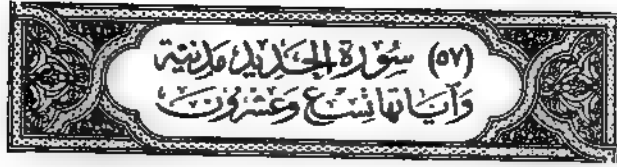 (٥٧) سُورَة الحَدِيد مَدَنِيَّة
وَآيَاتُهَا تِسْعٌ وَعِشْرُونَ